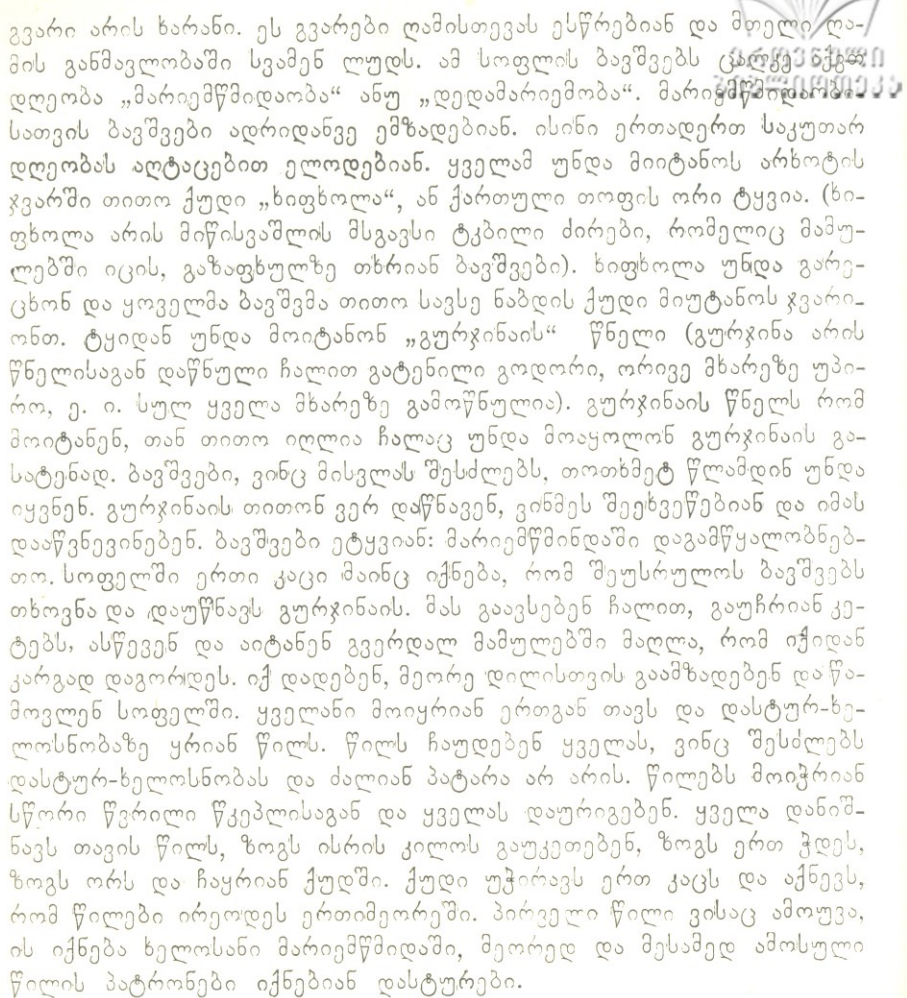 გვარი არის ხარანი. ეს გვარები ღამისთევას ესწრებიან და მთელი ღა-
მის განმავლობაში სვამენ ლუდს. ამ სოფლის ბავშვებს ცალკე აქვთ
დღეობა „მარიემწმიდაობა“ ანუ „დედამარიემობა“. მარიემწმიდაობი-
სათვის ბავშვები ადრიდანვე ემზადებიან. ისინი ერთადერთ საკუთარ
დღეობას აღტაცებით ელოდებიან. ყველამ უნდა მიიტანოს არხოტის
ჯვარში თითო ქუდი „ხიფხოლა“, ან ქართული თოფის ორი ტყვია. (ხი-
ფხოლა არის მიწისვაშლის მსგავსი ტკბილი ძირები, რომელიც მამუ-
ლებში იცის, გაზაფხულზე თხრიან ბავშვები). ხიფხოლა უნდა გარე-
ცხონ და ყოველმა ბავშვმა თითო სავსე ნაბდის ქუდი მიუტანოს ჯვარი-
ონთ. ტყიდან უნდა მოიტანონ „გურჯინაის“ წნელი (გურჯინა არის
წნელისაგან დაწნული ჩალით გატენილი გოდორი, ორივე მხარეზე უპი-
რო, ე. ი. სულ ყველა მხარეზე გამოწნულია). გურჯინაის წნელს რომ
მოიტანენ, თან თითო იღლია ჩალაც უნდა მოაყოლონ გურჯინაის გა-
სატენად. ბავშვები, ვინც მისვლას შესძლებს, თოთხმეტ წლამდინ უნდა
იყვნენ. გურჯინაის თითონ ვერ დაწნავენ, ვინმეს შეეხვეწებიან და იმას
დააწვნევინებენ. ბავშვები ეტყვიან: მარიემწმინდაში დაგამწყალობნებ-
თო. სოფელში ერთი კაცი მაინც იქნება, რომ შეუსრულოს ბავშვებს
თხოვნა და დაუწნავს გურჯინაის. მას გაავსებენ ჩალით, გაუჩრიან კე-
ტებს, ასწევენ და აიტანენ გვერდალ მამულებში მაღლა, რომ იქიდან
კარგად დაგორდეს. იქ დადებენ, მეორე დილისთვის გაამზადებენ და წა-
მოვლენ სოფელში. ყველანი მოიყრიან ერთგან თავს და დასტურ-ხე-
ლოსნობაზე ყრიან წილს. წილს ჩაუდებენ ყველას, ვინც შესძლებს
დასტურ-ხელოსნობას და ძალიან პატარა არ არის. წილებს მოიჭრიან
სწორი წვრილი წკეპლისაგან და ყველას დაურიგებენ. ყველა დანიშ-
ნავს თავის წილს, ზოგს ისრის კილოს გაუკეთებენ, ზოგს ერთ ჭდეს,
ზოგს ორს და ჩაყრიან ქუდში. ქუდი უჭირავს ერთ კაცს და აქნევს,
რომ წილები ირეოდეს ერთიმეორეში. პირველი წილი ვისაც ამოუვა,
ის იქნება ხელოსანი მარიემწმიდაში, მეორედ და მესამედ ამოსული
წილის პატრონები იქნებიან დასტურები.
ეროვნული
ბიბლიოთეკა